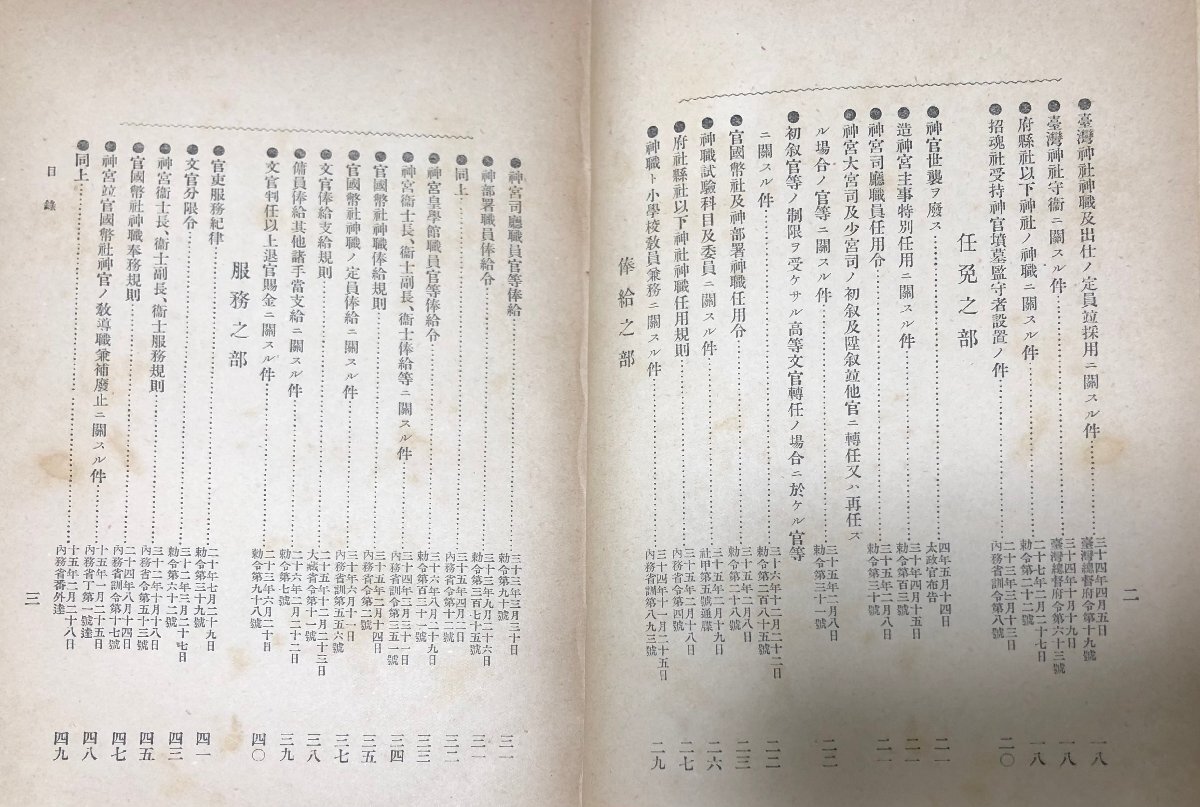 二
臺灣神社神職及出仕ノ定員竝採用ニ關スル件 三十四年四月五日 臺灣總督府令第十九號 一八
臺灣神社守衞ニ關スル件 三十四年十月十九日 臺灣總督府令第六十三號 一八
府縣社以下神社ノ神職ニ關スル件 二十七年二月二十七日 勅令第二十二號 一八
招魂社受持神官墳墓監守者設置ノ件 二十三年三月十三日 內務省訓令第八號 二〇
任免之部
神官世襲ヲ廢ス 四年五月十四日 太政官布告 二一
造神宮主事特別任用ニ關スル件 三十年四月十五日 勅令第百三號 二一
神宮司廳職員任用令 三十五年二月八日 勅令第三十號 二一
神宮大宮司及少宮司ノ初叙及陞叙竝他官ニ轉任又ハ再任ス
ル場合ノ官等ニ關スル件 三十五年二月八日 勅令第三十一號 二二
初叙官等ノ制限ヲ受ケサル高等文官轉任ノ場合ニ於ケル官等
ニ關スル件 三十六年十二月二十二日 勅令第二百八十五號 二二
官國幣社及神部署神職任用令 三十五年二月八日 勅令第二十八號 二三
神職試驗科目及委員ニ關スル件 三十五年二月十九日 社甲第五號通牒 二六
府社縣社以下神社神職任用規則 內務省令第四號 二七
神職ト小學校敎員兼務ニ關スル件 三十四年十一月二十五日 內務省訓第八九三號 二九
俸給之部
神宮司廳職員官等俸給 三十三年三月三十日 勅令第九十號 三一
神部署職員俸給令 三十三年九月二十六日 勅令第三百七十五號 三一
同上 三十五年四月四日 內務省令第十號 三二
神宮皇學館職員官等俸給令 三十六年八月二十九日 勅令第百三十號 三三
神宮衞士長、衞士副長、衞士俸給等ニ關スル件 三十二年三月三十一日 內務省訓令第三五一號 三四
官國幣社神職俸給規則 三十五年二月十四日 內務省令第二號 三五
官國幣社神職ノ定員俸給ニ關スル件 三十年六月十日 內務省訓第五五六號 三七
文官俸給支給規則 二十五年十二月二十三日 大藏省令第十一號 三八
傭員俸給其他諸手當支給ニ關スル件 二十六年二月二十二日 勅令第七號 三九
文官判任以上退官賜金ニ關スル件 二十三年六月二十日 勅令第九十八號 四〇
服務之部
官吏服務紀律 二十年七月二十九日 勅令第三十九號 四一
文官分限令 三十二年三月二十七日 勅令第六十二號 四三
神宮衞士長、衞士副長、衞士服務規則 三十二年十月十八日 內務省令第五十三號 四五
官國幣社神職奉務規則 二十四年八月十四日 內務省訓令第十七號 四七
神宮竝官國幣社神官ノ敎導職兼補廢止ニ關スル件 十五年一月二十五日 內務省丁第一號達 四八
同上 十五年一月二十八日 內務省番外達 四九
目錄
三